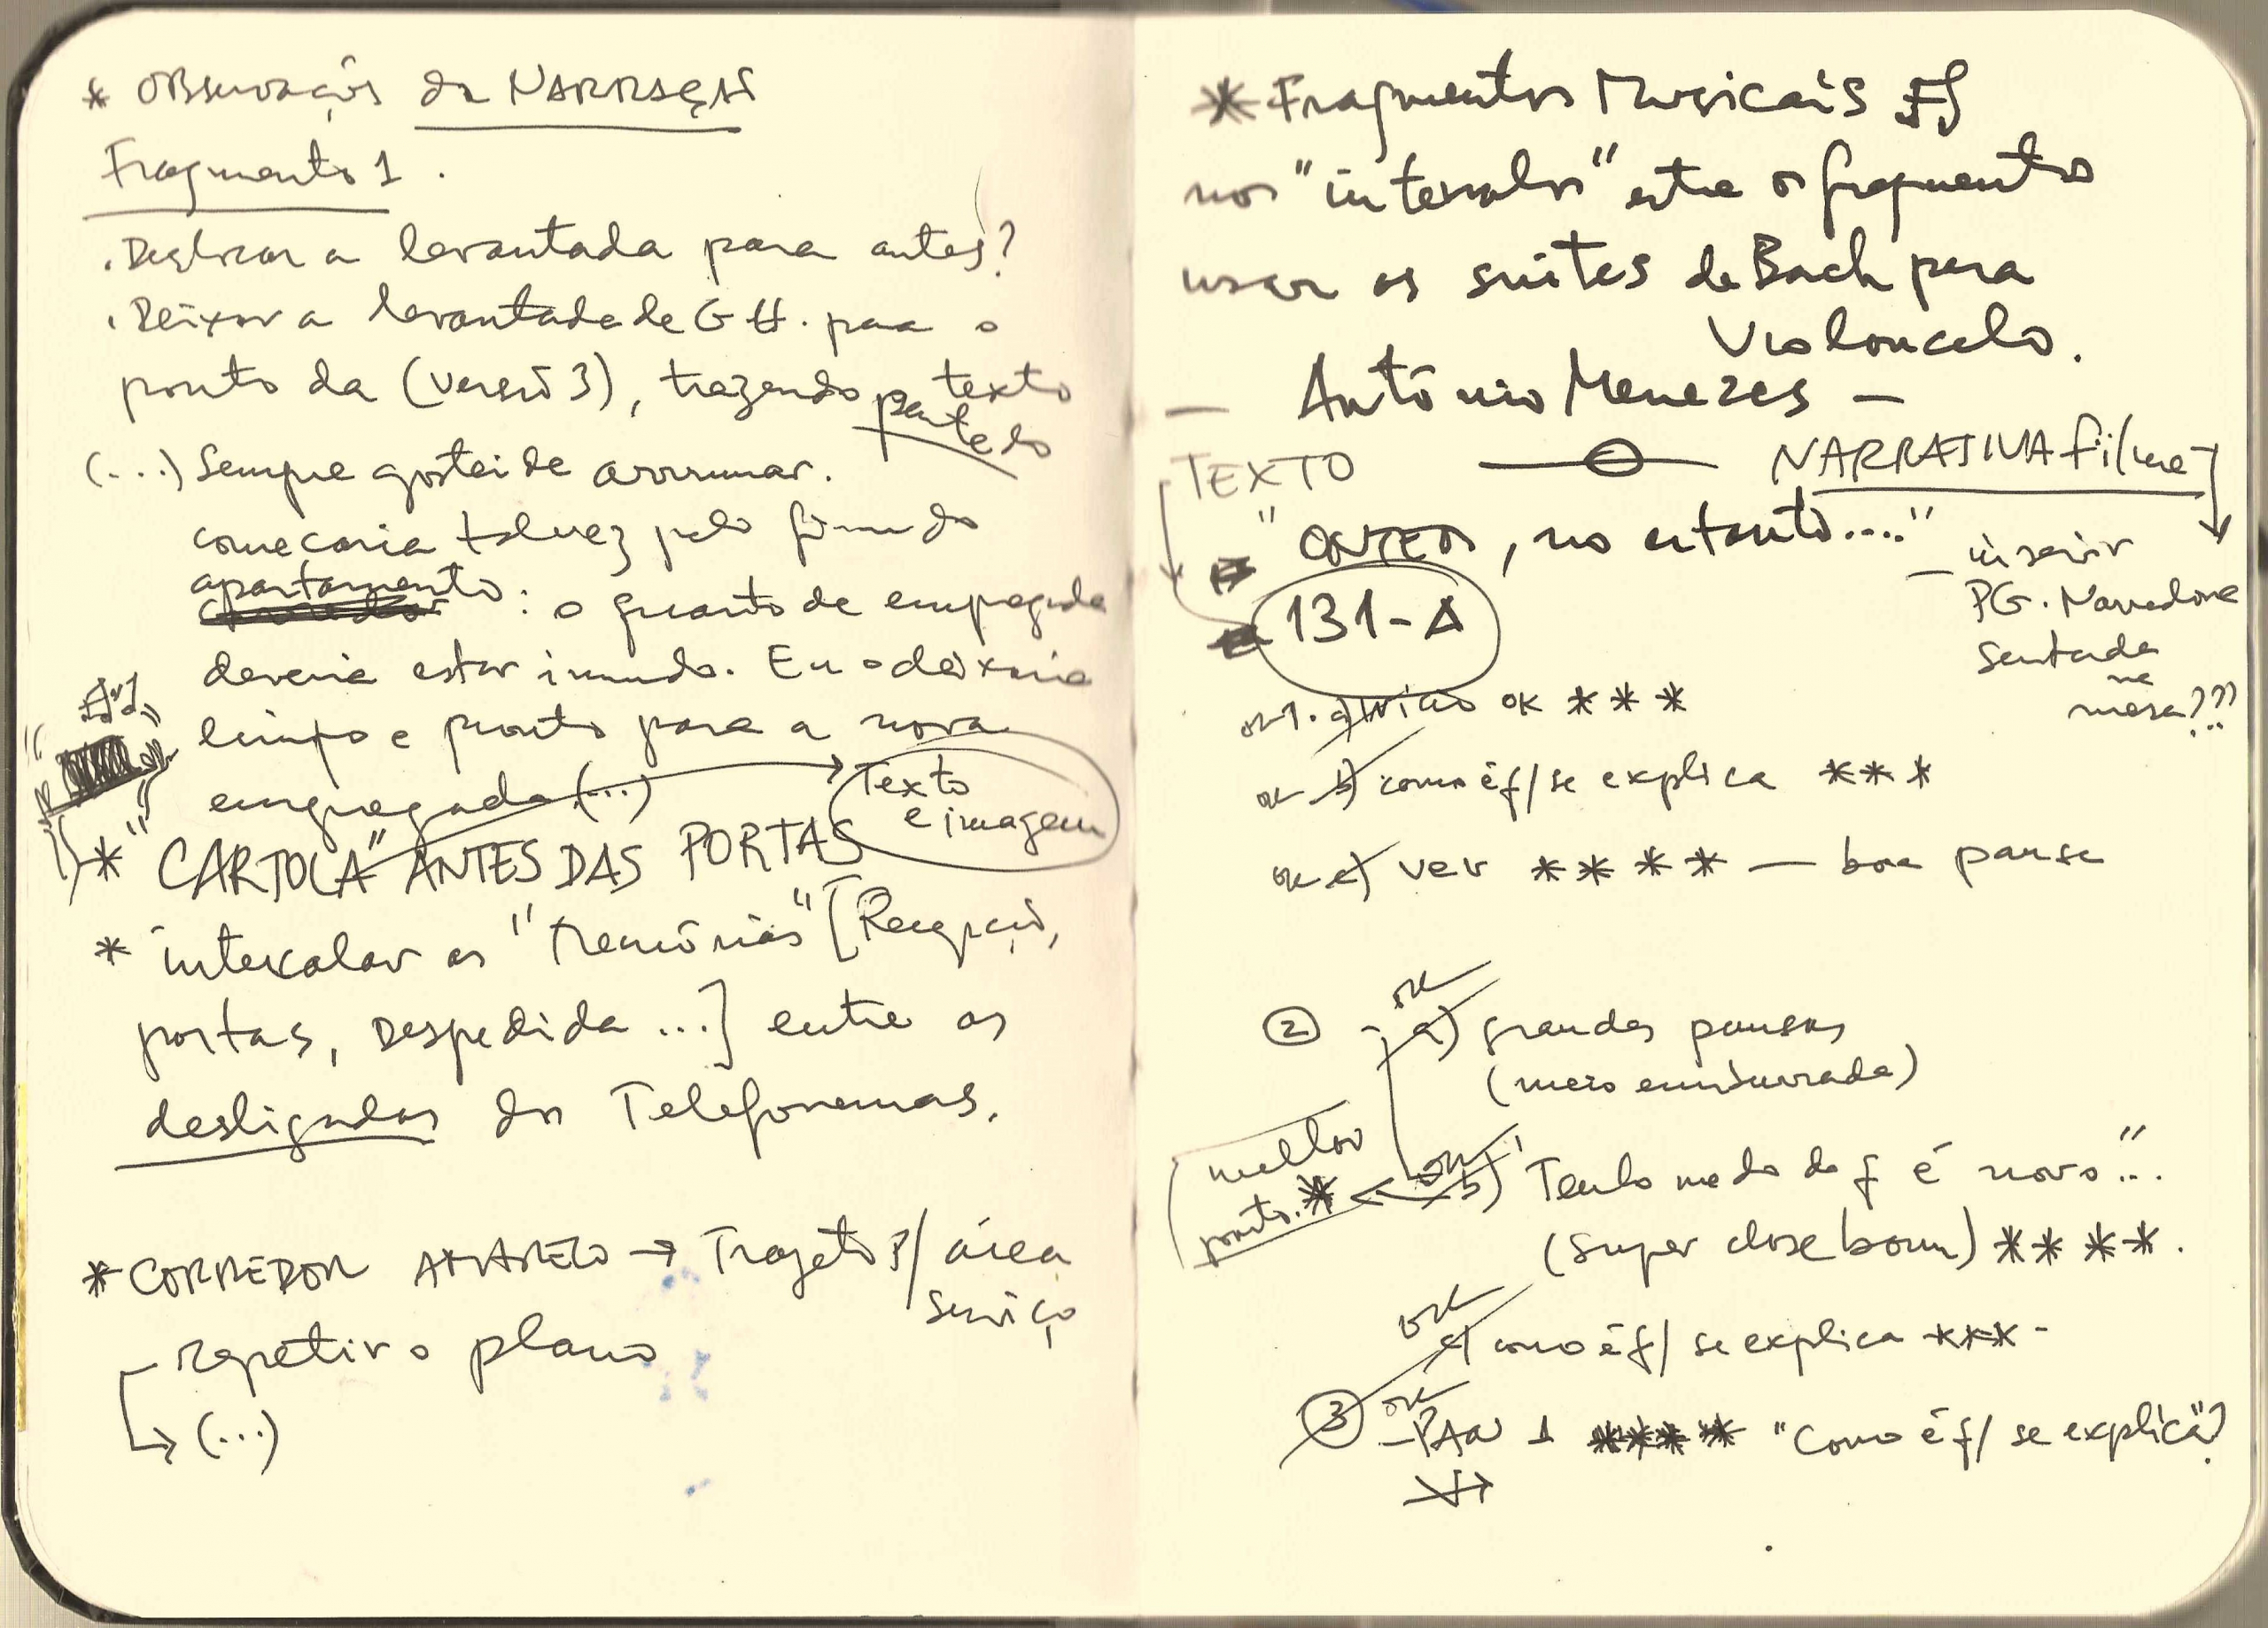 * Observações da NARRAÇÃO
Fragmento 1.
. Deslocar a levantada para antes?
. Deixar a levantada de G.H. para o
ponto da (versão 3), trazendo parte do texto
(...) Sempre gostei de arrumar.
começaria talvez pelo fim do
apartamento: o quarto de empregada
deveria estar imundo. Eu o deixaria
limpo e pronto para a nova
empregada (...)
Texto
e imagem
* "CARTOLA" ANTES DAS PORTAS
* intercalar as "memórias" [Recepção,
portas, Despedida ...] entre as
desligadas dos Telefonemas.
* CORREDOR AMARELO → Trajeto p/ área
serviço
– repetir o plano
↳ (...)
* Fragmentos Musicais
nos "intervalos" entre os fragmentos
usar as suítes de Bach para
Violoncelo.
— Antônio Meneses —
TEXTO
NARRATIVA filme
"ONTEM, no entanto...."
– inserir
PG. Narradora
sentada
na
mesa???
131-A
ok 1. a) início ok * * *
ok b) como é q/ se explica * * *
ok c) ver * * * * — boa pausa
② - ok a) grandes pausas
(meio emburrada)
melhor
ponto. *
ok b) "Tenho medo do q é novo"...
(super close bom) * * * *.
ok c) como é q/ se explica * * * -
③ ok – PAN 1 * * * * "Como é q/ se explica"?